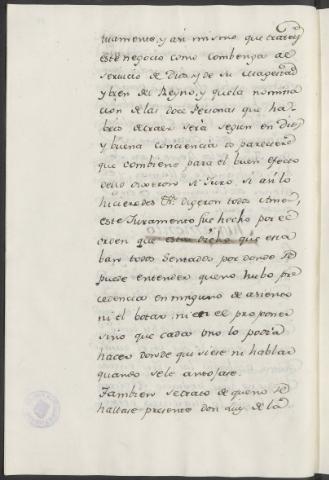 ramento, y asi mismo que trateis
este negocio como combenga al
servicio de Dios y de su Magestad
y bien del Reyno, y que la nomina
cion de las doce Personas que ha-
beis de traer será segun en Dios
y buena conciencia os pareciere
que combiene para el buen efecto
dello digeron si Juro, si asi lo
hicieredes &c. digeron todos Amen,
este Juramento fue hecho por el
orden que estan dicho que esta
ban todos sentados por donde se
puede entender que no hubo pre
cedencia en ninguno de asientos
ni el botar ni en el proponer
sino que cada uno lo podia
hacer donde quisiese ni hablar
quando se le antojase.
Tambien se trato de que no se
hallase presente don Luy de la